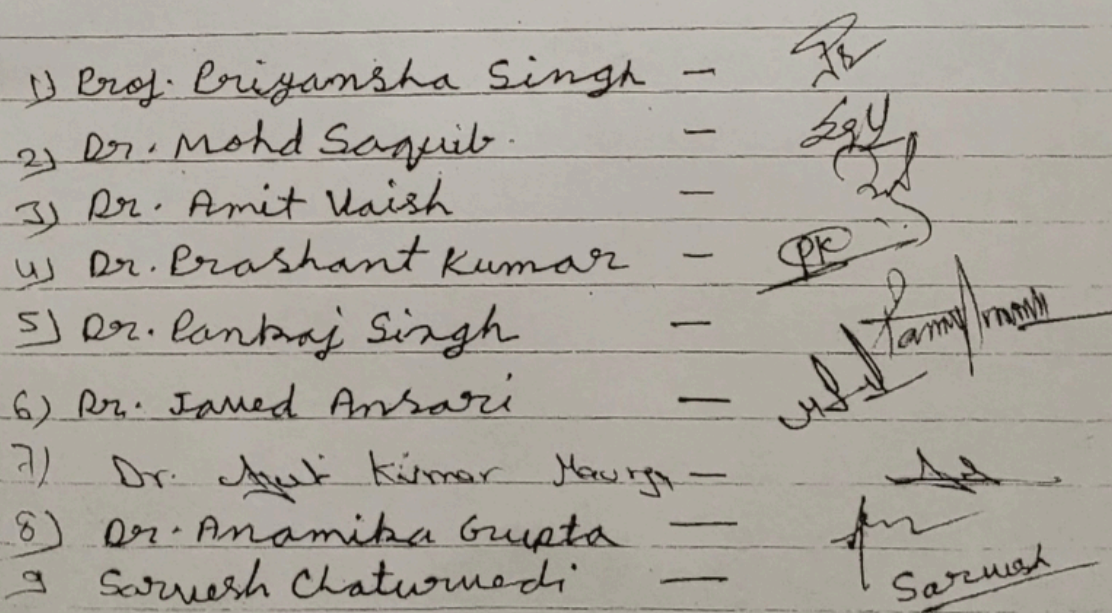 1) Prof. Priyansha Singh –
2) Dr. Mohd Saquib. –
3) Dr. Amit Vaish –
4) Dr. Prashant Kumar – PK
5) Dr. Pankaj Singh –
6) Dr. Javed Ansari –
7) Dr. Kumar Maurya –
8) Dr. Anamika Gupta –
9 Sarvesh Chaturvedi – Sarvesh